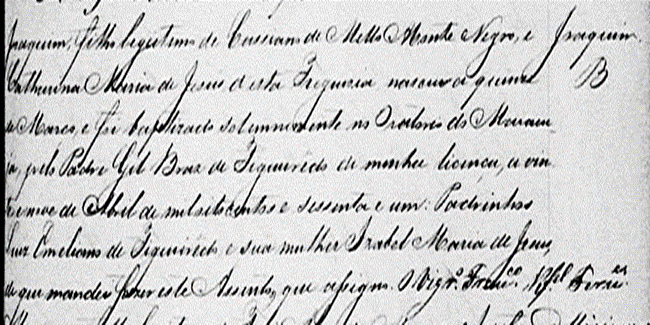 Joaquim, filho legitimo de Cassiano de Mello Monte Negro, e Joaquim.
Catharina Maria de Jesus desta Freguesia nasceu a quinze B
de Março, e foi baptizado solemnemente no Oratorio do
pelo Padre Gil Braz de Figueiredo de minha licença, a vin
te nove de Abril de mil oitocentos e sessenta e um: Padrinhos
Luiz Emeliano de Figueiredo, e sua mulher Izabel Maria de Jesus,
de que mandei fazer este Assento, que assigno. O Vigr.º Franc.co Rfel